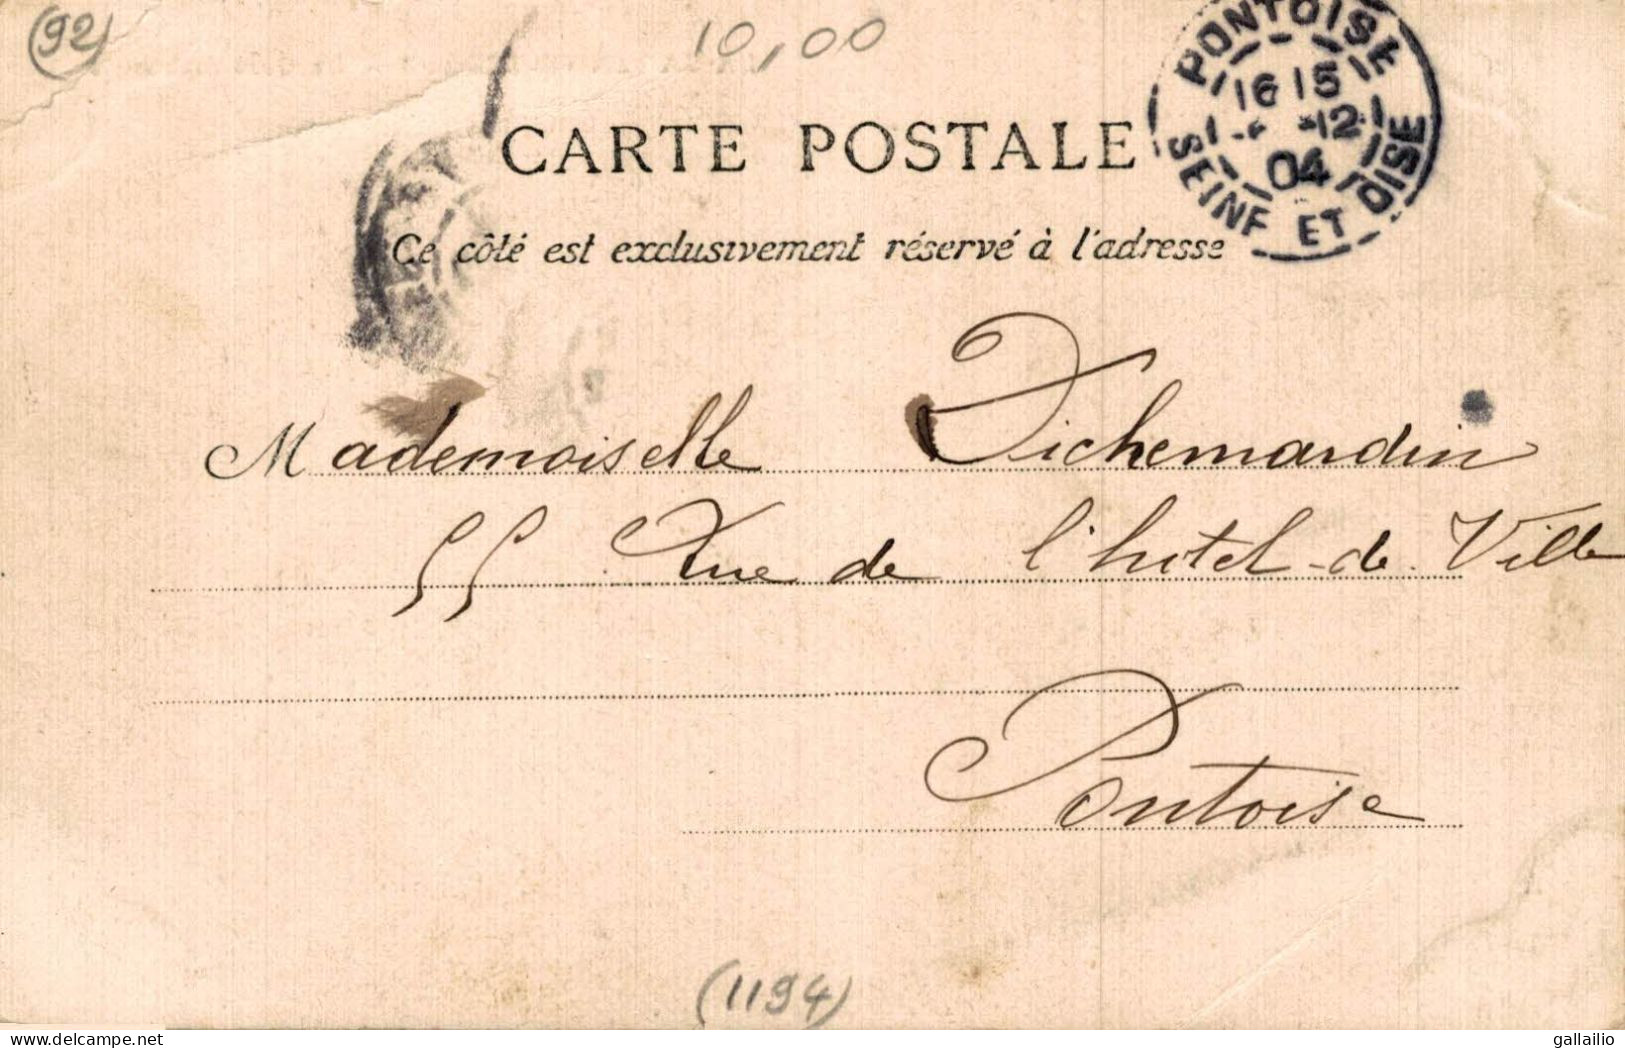 (92)
10,00
PONTOISE
16 15
12
04
SEINE ET OISE
CARTE POSTALE
Ce côté est exclusivement réservé à l'adresse
Mademoiselle Dichemardin
55 Rue de l'hotel-de-Ville
Pontoise
(1194)
www.delcampe.net
gallailio